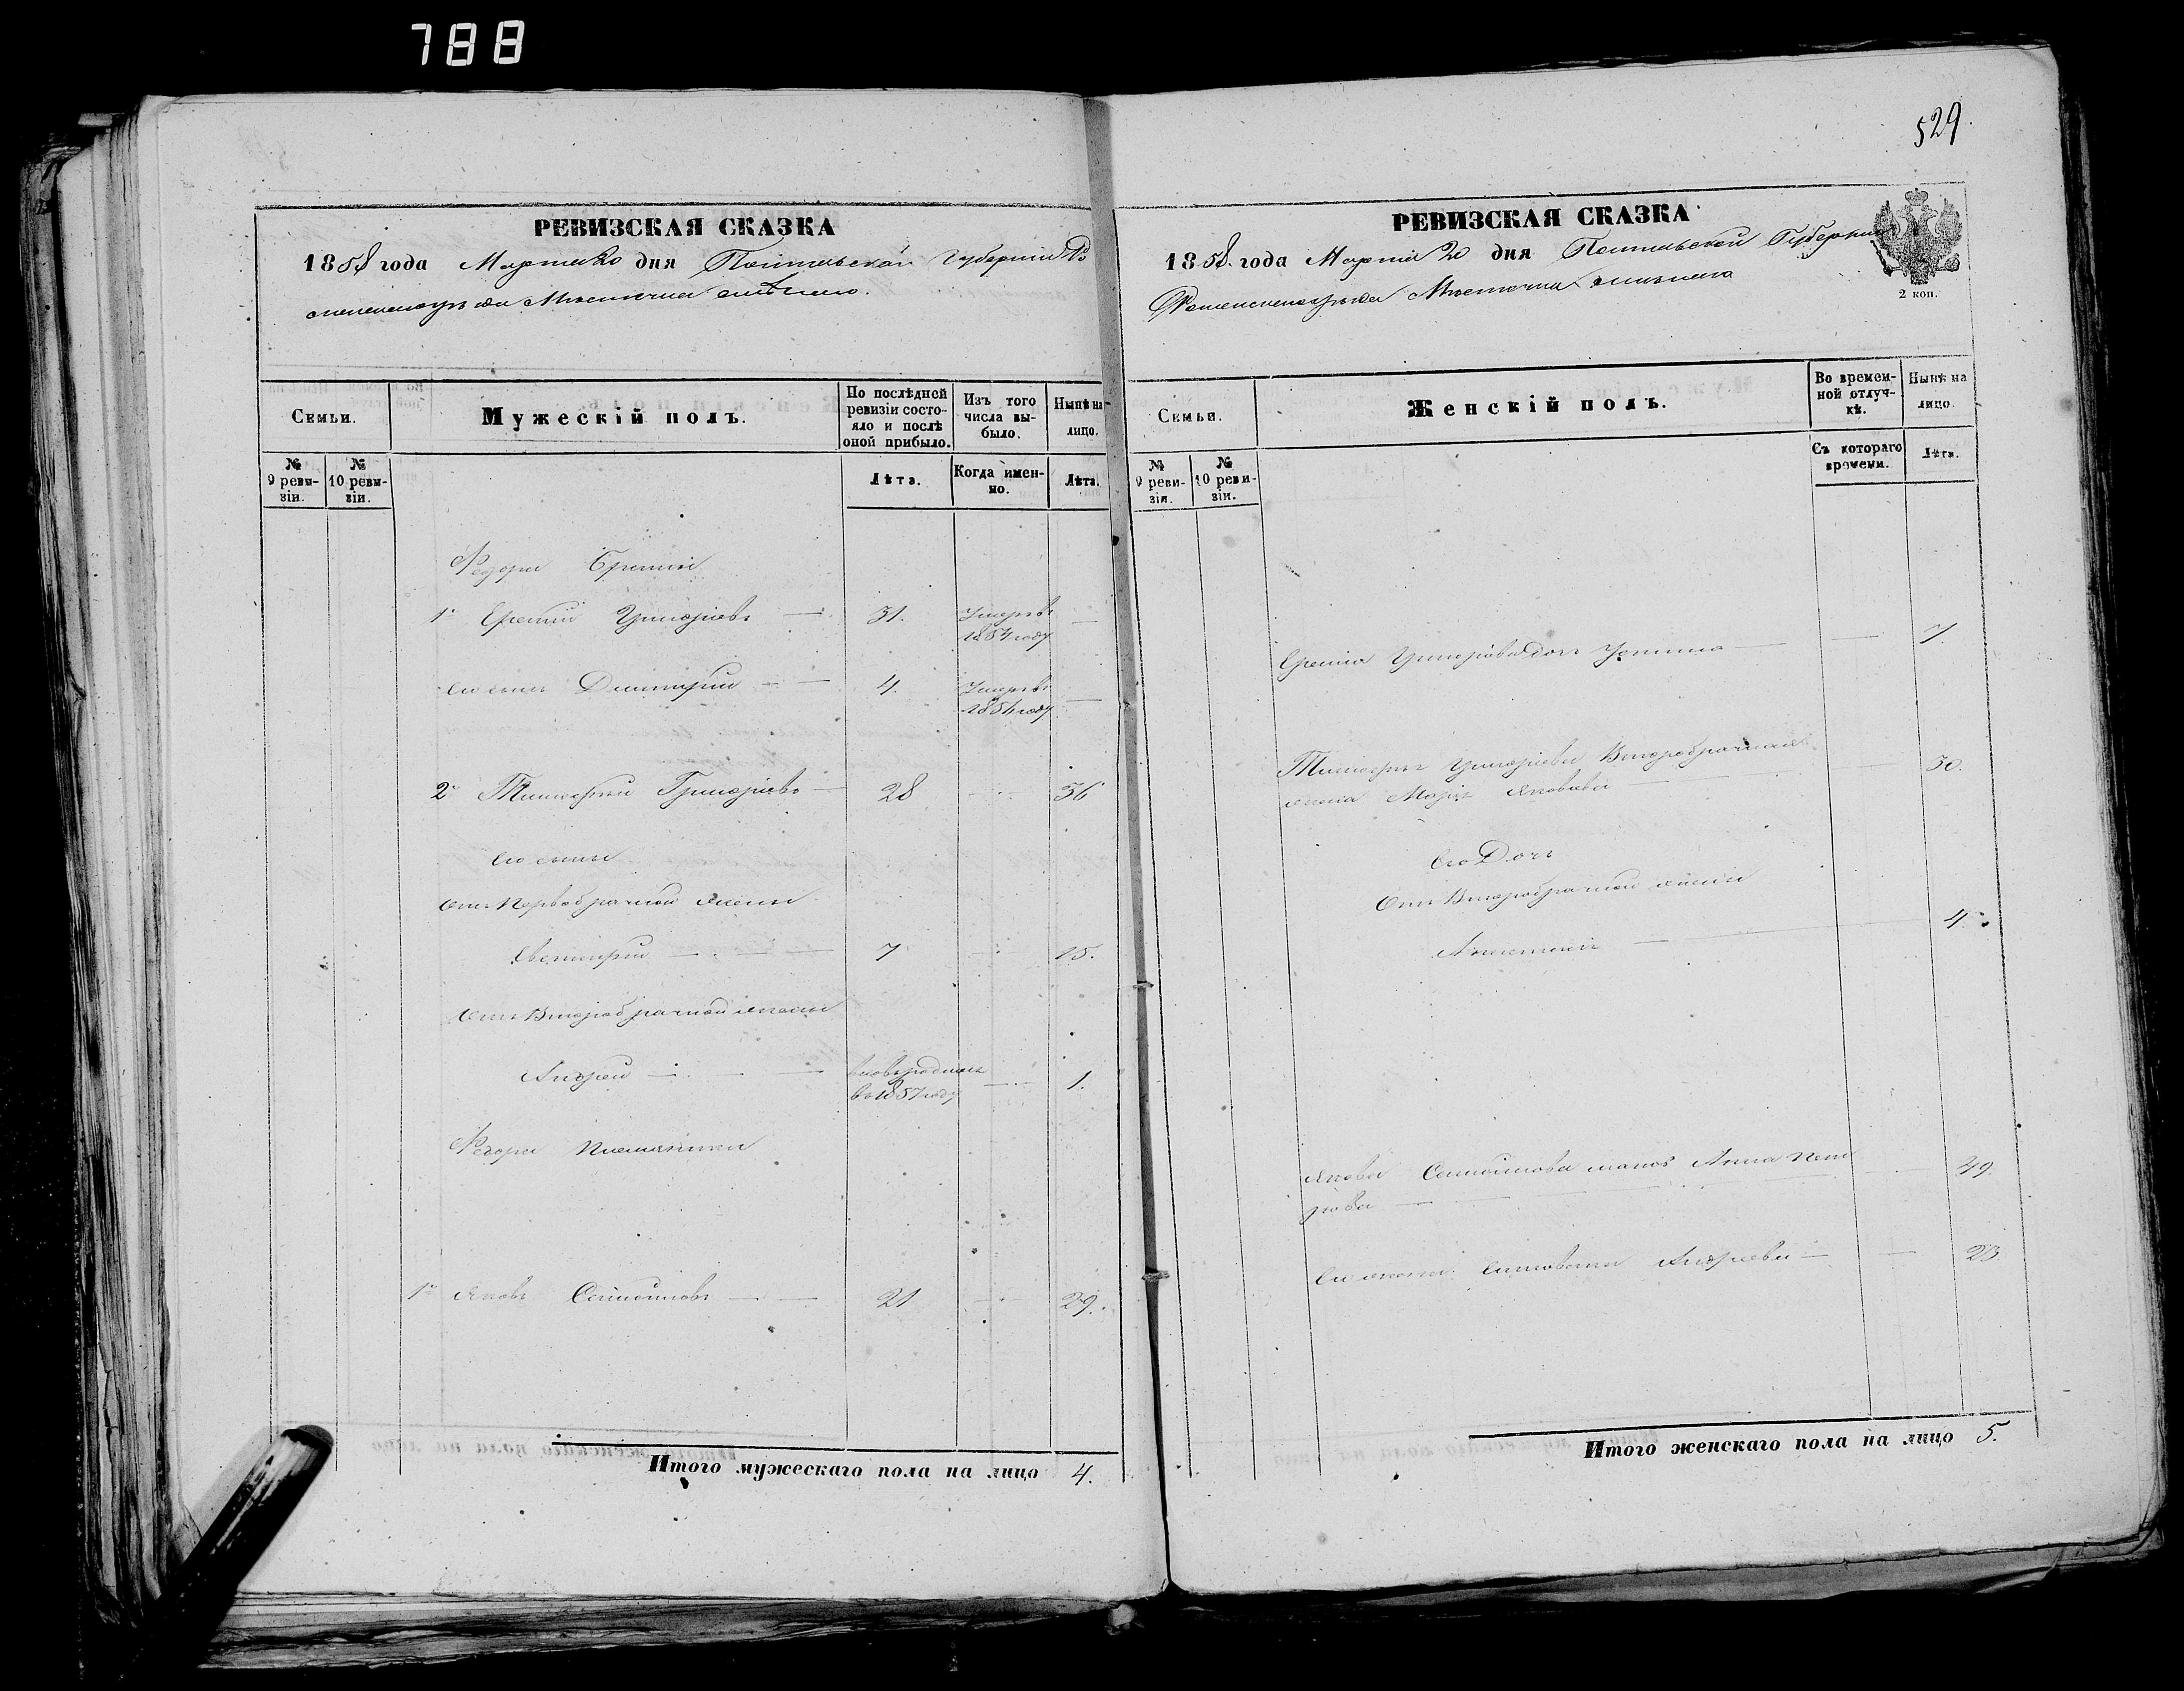 788
529.
РЕВИЗСКАЯ СКАЗКА
1858 года Марта 20 дня Полтавской Губернии Ро
менскаго уезда Местечка Смѣлаго.
Семьи.
Мужескій полъ.
По послѣдней ревизіи состояло и послѣ оной прибыло.
Изъ того числа выбыло.
Нынѣ на лицо.
№ 9 ревизіи.
№ 10 ревизіи.
Лѣта.
Когда именно.
Лѣта.
Федора Братья
1й Еремий Григорьевъ — 31. Умеръ въ 1854 году —
Его сынъ Димитрий — 4. Умеръ въ 1854 году —
2й Тимофей Григорьевъ — 28 — 36
Его сыны
Отъ Первобрачной жены
Евстафий — 7 — 15.
Отъ Второбрачной жены
Андрей — вновь родился въ 1857 году — 1.
Федора Племянники
1й Яковъ Самойловъ — 21 — 29.
Итого мужескаго пола на лицо 4.
РЕВИЗСКАЯ СКАЗКА
1858 года Марта 20 дня Полтавской Губернии
Роменскаго уезда Местечка Смѣлаго
2 коп.
Семьи.
Женскій полъ.
Во временной отлучкѣ.
Нынѣ на лицо.
№ 9 ревизіи.
№ 10 ревизіи.
Съ котораго времени.
Лѣта.
Еремия Григорьева дочь — 7.
Тимофея Григорьева Второбрачная
жена Марья Яковлева — 30.
Его Дочь
Отъ Второбрачной жены
— 4.
Якова Самойлова мать Анна Пет
рова — 49.
Его жена Андреева — 23.
Итого женскаго пола на лицо 5.